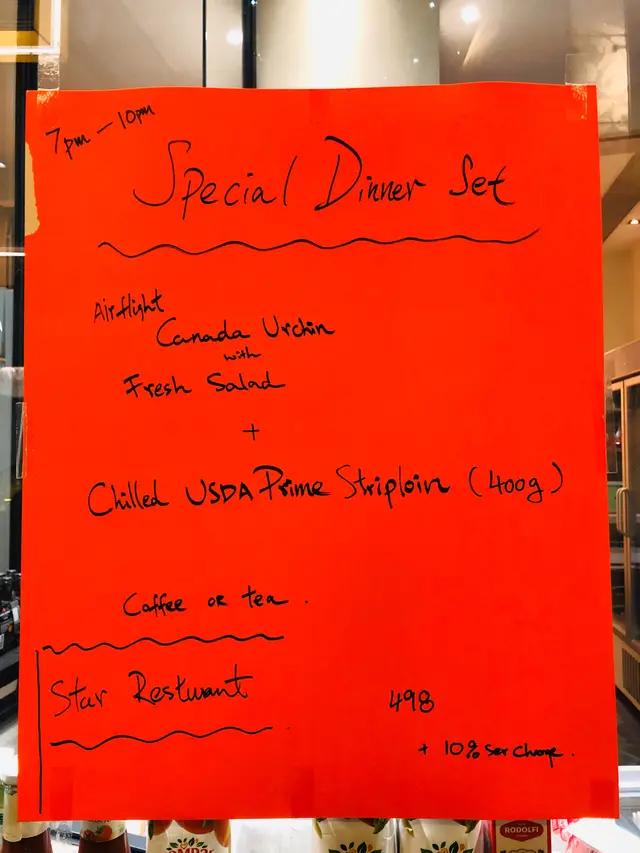 7pm — 10pm
Special Dinner Set
Airflight
Canada Urchin
with
Fresh Salad
+
Chilled USDA Prime Striploin (400g)
Coffee or tea .
Star Resturant
498
+ 10% ser charge .
RODOLFI